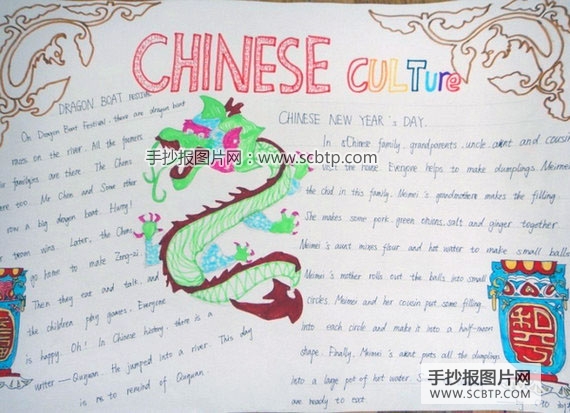 CHINESE CULTure
DRAGON BOAT
On Dragon Boat Festival, there are dragon boat
races on the river. All the
families are there. The Chens
are too. Mr Chen and Some other
row a big dragon boat. Hurry!
team wins. Later, the Chens
go home to make Zong-zi
Then they eat and talk, and
the children play games. Everyone
is happy. Oh! In Chinese history, there is a
writer — Quyuan. He jumped into a river. This day
is to remind of Quyuan.
CHINESE NEW YEAR's DAY.
In a Chinese family, grandparents, uncle, aunt and cousin
visit the house. Everyone helps to make dumplings. Meimei
the child in this family. Meimei's grandmother makes the filling
She makes some pork, green onions, salt and ginger together
Meimei's aunt mixes flour and hot water to make small balls
Meimei's mother rolls out the balls into small
circles. Meimei and her cousin put some filling
into each circle and make it into a half-moon
shape. Finally, Meimei's aunt puts all the dumplings
into a large pot of hot water.
are ready to eat.
手抄报图片网：www.scbtp.com
手抄报图片网
WWW.SCBTP.COM